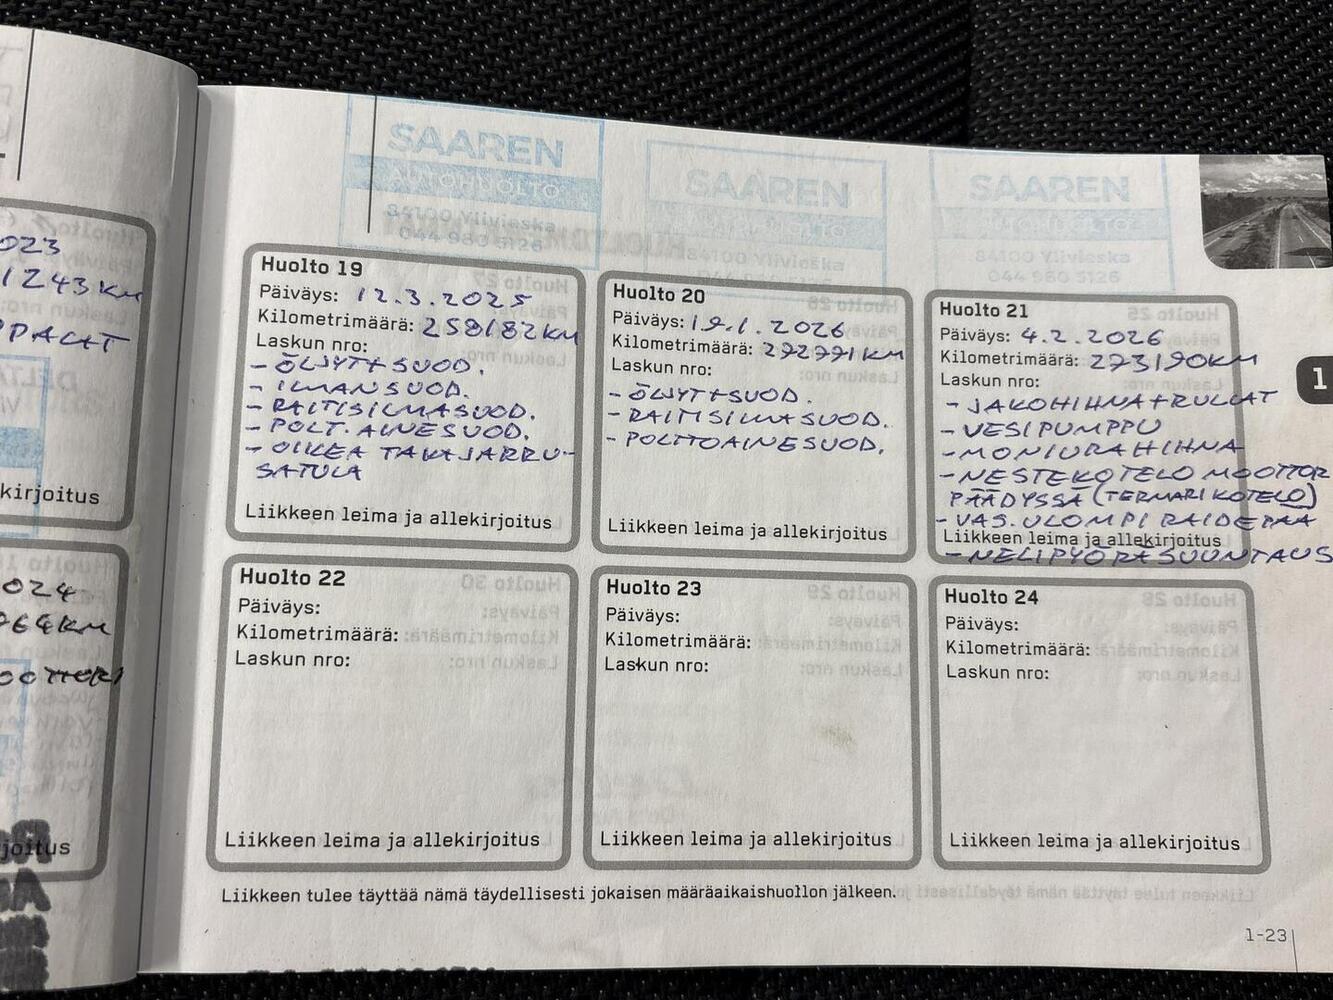 023
1243KM
PPACHT
kirjoitus
024
OOTTORI
joitus
SAAREN
AUTOHUOLTO
84100 Ylivieska
044 980 5126
SAAREN
AUTOHUOLTO
84100 Ylivieska
SAAREN
AUTOHUOLTO
84100 Ylivieska
044 980 5126
Huolto 19
Päiväys: 12.3.2025
Kilometrimäärä: 258182KM
Laskun nro:
- ÖLJYT+SUOD.
- ILMANSUOD.
- RAITISILMASUOD.
- POLT.AINESUOD.
- OIKEA TAKAJARRU-
SATULA
Liikkeen leima ja allekirjoitus
Huolto 20
Päiväys: 19.1.2026
Kilometrimäärä: 272991KM
Laskun nro:
- ÖLJYT+SUOD.
- RAITISILMASUOD.
- POLTTOAINESUOD.
Liikkeen leima ja allekirjoitus
Huolto 21
Päiväys: 4.2.2026
Kilometrimäärä: 273190KM
Laskun nro:
- JAKOHIHNA+RULLAT
- VESIPUMPPU
- MONIURAHIHNA
- NESTEKOTELO MOOTTOR
PÄÄDYSSÄ (TERMARIKOTELO)
- VAS.ULOMPI RAIDEPÄÄ
Liikkeen leima ja allekirjoitus
- NELIPYÖRÄSUUNTAUS
1
Huolto 22
Päiväys:
Kilometrimäärä:
Laskun nro:
Liikkeen leima ja allekirjoitus
Huolto 23
Päiväys:
Kilometrimäärä:
Laskun nro:
Liikkeen leima ja allekirjoitus
Huolto 24
Päiväys:
Kilometrimäärä:
Laskun nro:
Liikkeen leima ja allekirjoitus
Liikkeen tulee täyttää nämä täydellisesti jokaisen määräaikaishuollon jälkeen.
1-23